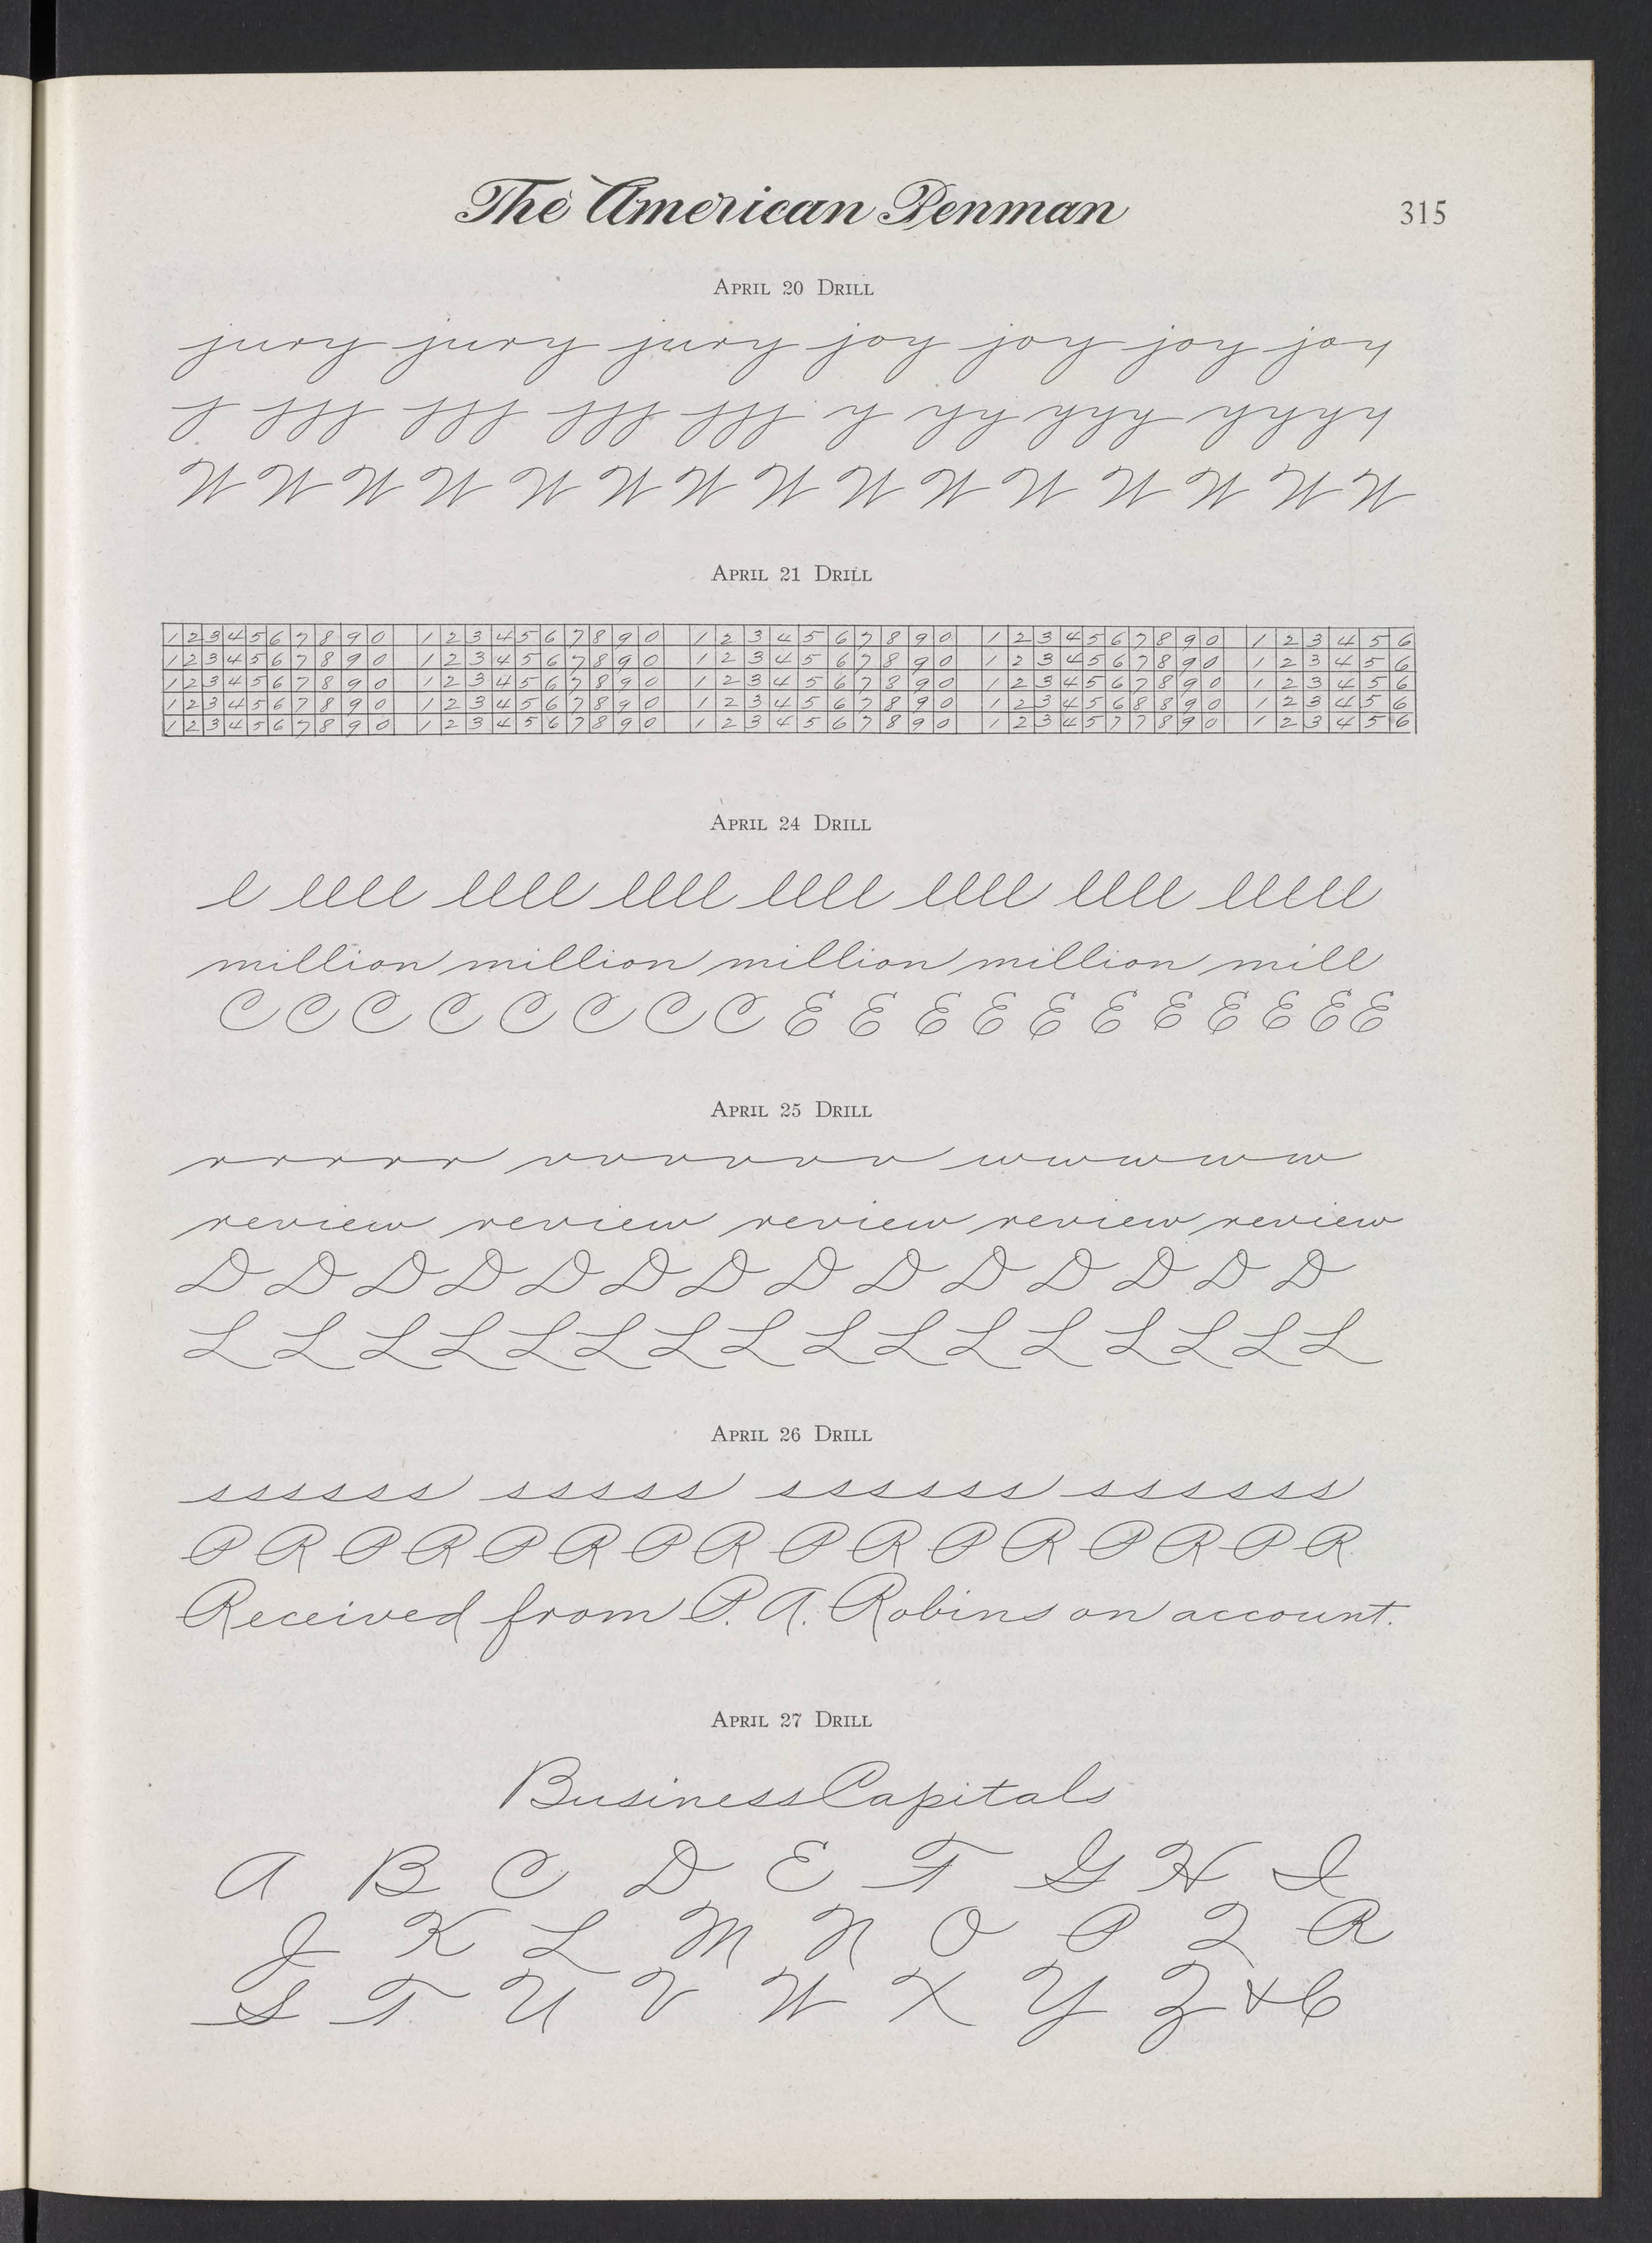 The American Penman 315
April 20 Drill
jury jury jury joy joy joy joy
j jjj jjj jjj jjj y yy yyy yyyy
W W W W W W W W W W W W W W W
April 21 Drill
1 2 3 4 5 6 7 8 9 0 1 2 3 4 5 6 7 8 9 0 1 2 3 4 5 6 7 8 9 0 1 2 3 4 5 6 7 8 9 0 1 2 3 4 5 6
1 2 3 4 5 6 7 8 9 0 1 2 3 4 5 6 7 8 9 0 1 2 3 4 5 6 7 8 9 0 1 2 3 4 5 6 7 8 9 0 1 2 3 4 5 6
1 2 3 4 5 6 7 8 9 0 1 2 3 4 5 6 7 8 9 0 1 2 3 4 5 6 7 8 9 0 1 2 3 4 5 6 7 8 9 0 1 2 3 4 5 6
1 2 3 4 5 6 7 8 9 0 1 2 3 4 5 6 7 8 9 0 1 2 3 4 5 6 7 8 9 0 1 2 3 4 5 6 8 8 9 0 1 2 3 4 5 6
1 2 3 4 5 6 7 8 9 0 1 2 3 4 5 6 7 8 9 0 1 2 3 4 5 6 7 8 9 0 1 2 3 4 5 7 7 8 9 0 1 2 3 4 5 6
April 24 Drill
l llll llll llll llll llll llll lllll
million million million million mill
C C C C C C C C E E E E E E E E E E E
April 25 Drill
rrrrr vvvvvv wwwww
review review review review review
D D D D D D D D D D D D D D
L L L L L L L L L L L L L L L L
April 26 Drill
ssssss sssss ssssss ssssss
P R P R P R P R P R P R P R P R
Received from P. A. Robins on account.
April 27 Drill
Business Capitals
A B C D E F G H I
J K L M N O P Q R
S T U V W X Y Z & C